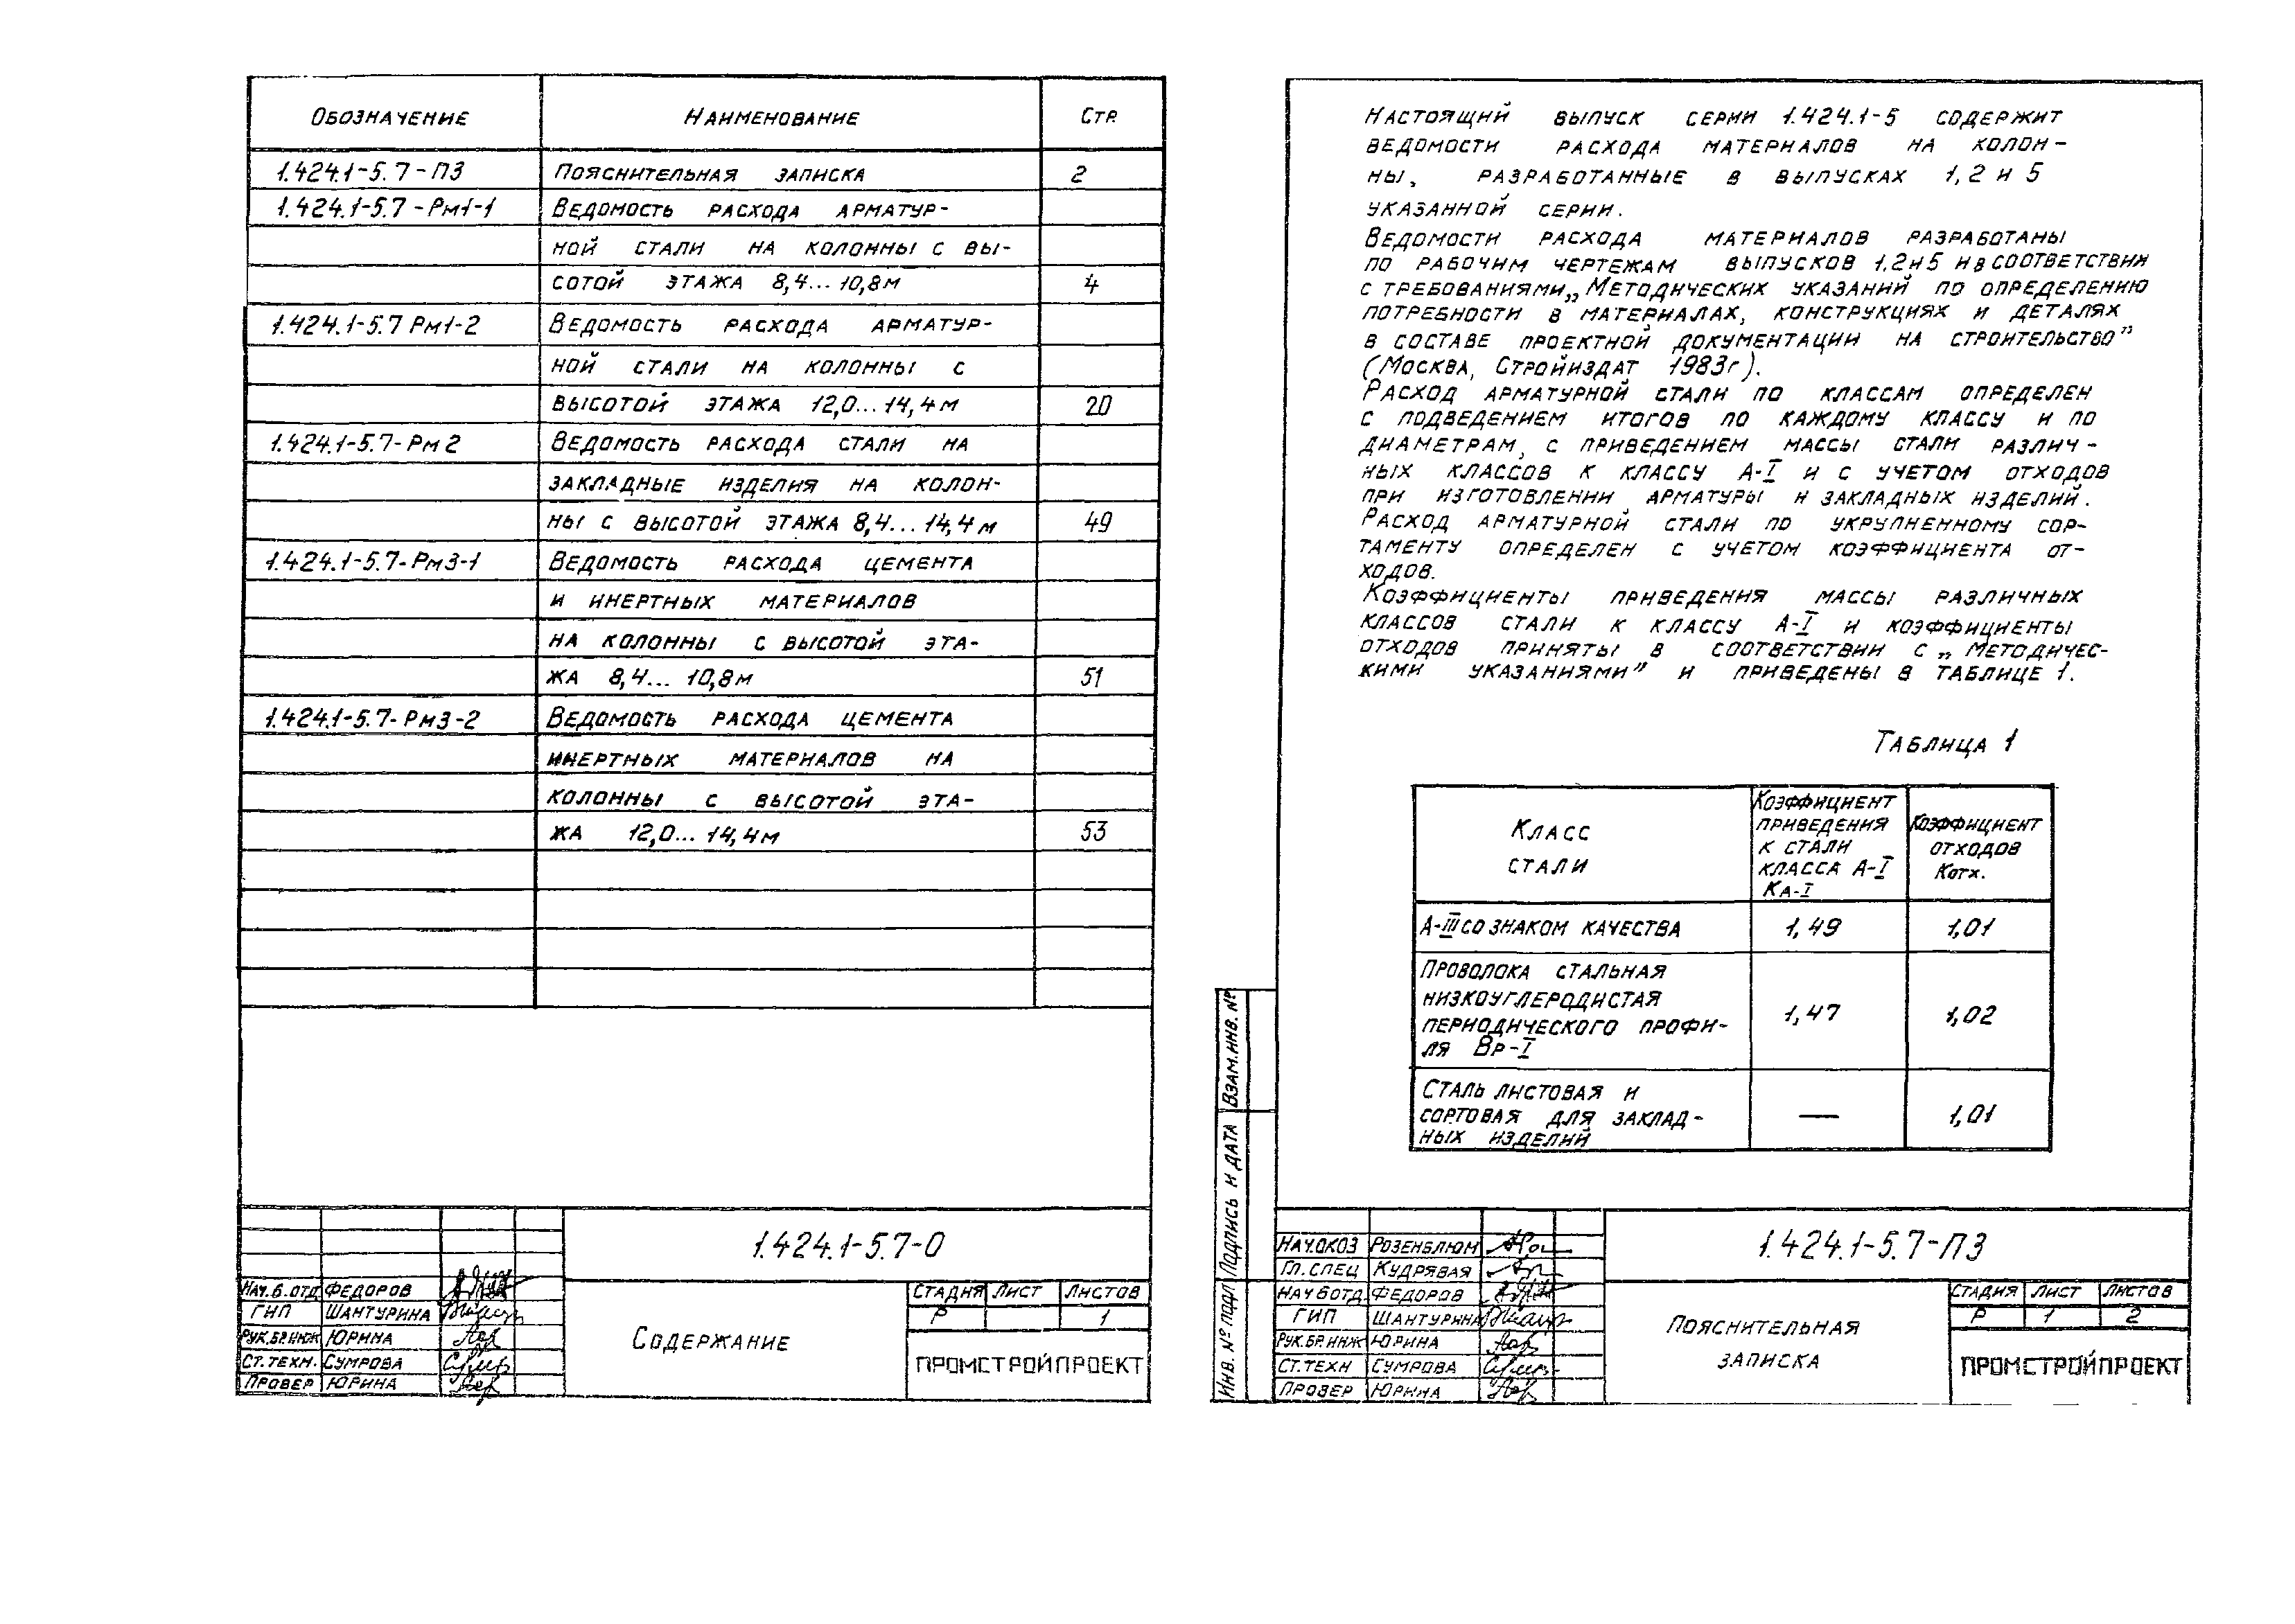 Обозначение Наименование Стр.
1.424.1-5.7-ПЗ Пояснительная записка 2
1.424.1-5.7-Рм1-1 Ведомость расхода арматур-
ной стали на колонны с вы-
сотой этажа 8,4...10,8м 4
1.424.1-5.7 Рм1-2 Ведомость расхода арматур-
ной стали на колонны с
высотой этажа 12,0...14,4м 20
1.424.1-5.7-Рм 2 Ведомость расхода стали на
закладные изделия на колон-
ны с высотой этажа 8,4...14,4м 49
1.424.1-5.7-Рм3-1 Ведомость расхода цемента
и инертных материалов
на колонны с высотой эта-
жа 8,4...10,8м 51
1.424.1-5.7-Рм3-2 Ведомость расхода цемента
инертных материалов на
колонны с высотой эта-
жа 12,0...14,4м 53
1.424.1-5.7-0
Нач.б.отд Федоров
ГИП Шантурина
Рук.бр.инж Юрина
Ст.техн. Сумрова
Провер Юрина
Содержание
Стадия Лист Листов
Р 1
ПРОМСТРОЙПРОЕКТ
Настоящий выпуск серии 1.424.1-5 содержит
ведомости расхода материалов на колон-
ны, разработанные в выпусках 1,2 и 5
указанной серии.
Ведомости расхода материалов разработаны
по рабочим чертежам выпусков 1.2и5 и в соответствии
с требованиями „Методических указаний по определению
потребности в материалах, конструкциях и деталях
в составе проектной документации на строительство"
(Москва, Стройиздат 1983г).
Расход арматурной стали по классам определен
с подведением итогов по каждому классу и по
диаметрам, с приведением массы стали различ-
ных классов к классу А-I и с учетом отходов
при изготовлении арматуры и закладных изделий.
Расход арматурной стали по укрупненному сор-
таменту определен с учетом коэффициента от-
ходов.
Коэффициенты приведения массы различных
классов стали к классу А-I и коэффициенты
отходов приняты в соответствии с „Методичес-
кими указаниями" и приведены в таблице 1.
Таблица 1
Класс
стали
Коэффициент
приведения
к стали
класса А-I
КА-I
Коэффициент
отходов
Котх.
А-III со знаком качества 1,49 1,01
Проволока стальная
низкоуглеродистая
периодического профи-
ля Вр-I
1,47 1,02
Сталь листовая и
сортовая для заклад-
ных изделий
— 1,01
Взам.инв. №
Подпись и дата
Инв. № подл
1.424.1-5.7-ПЗ
Нач.ОКОЗ Розенблюм
Гл.спец Кудрявая
Нач б отд Федоров
ГИП Шантурина
Рук.бр.инж Юрина
Ст.техн Сумрова
Провер Юрина
Пояснительная
записка
Стадия Лист Листов
Р 1 2
ПРОМСТРОЙПРОЕКТ